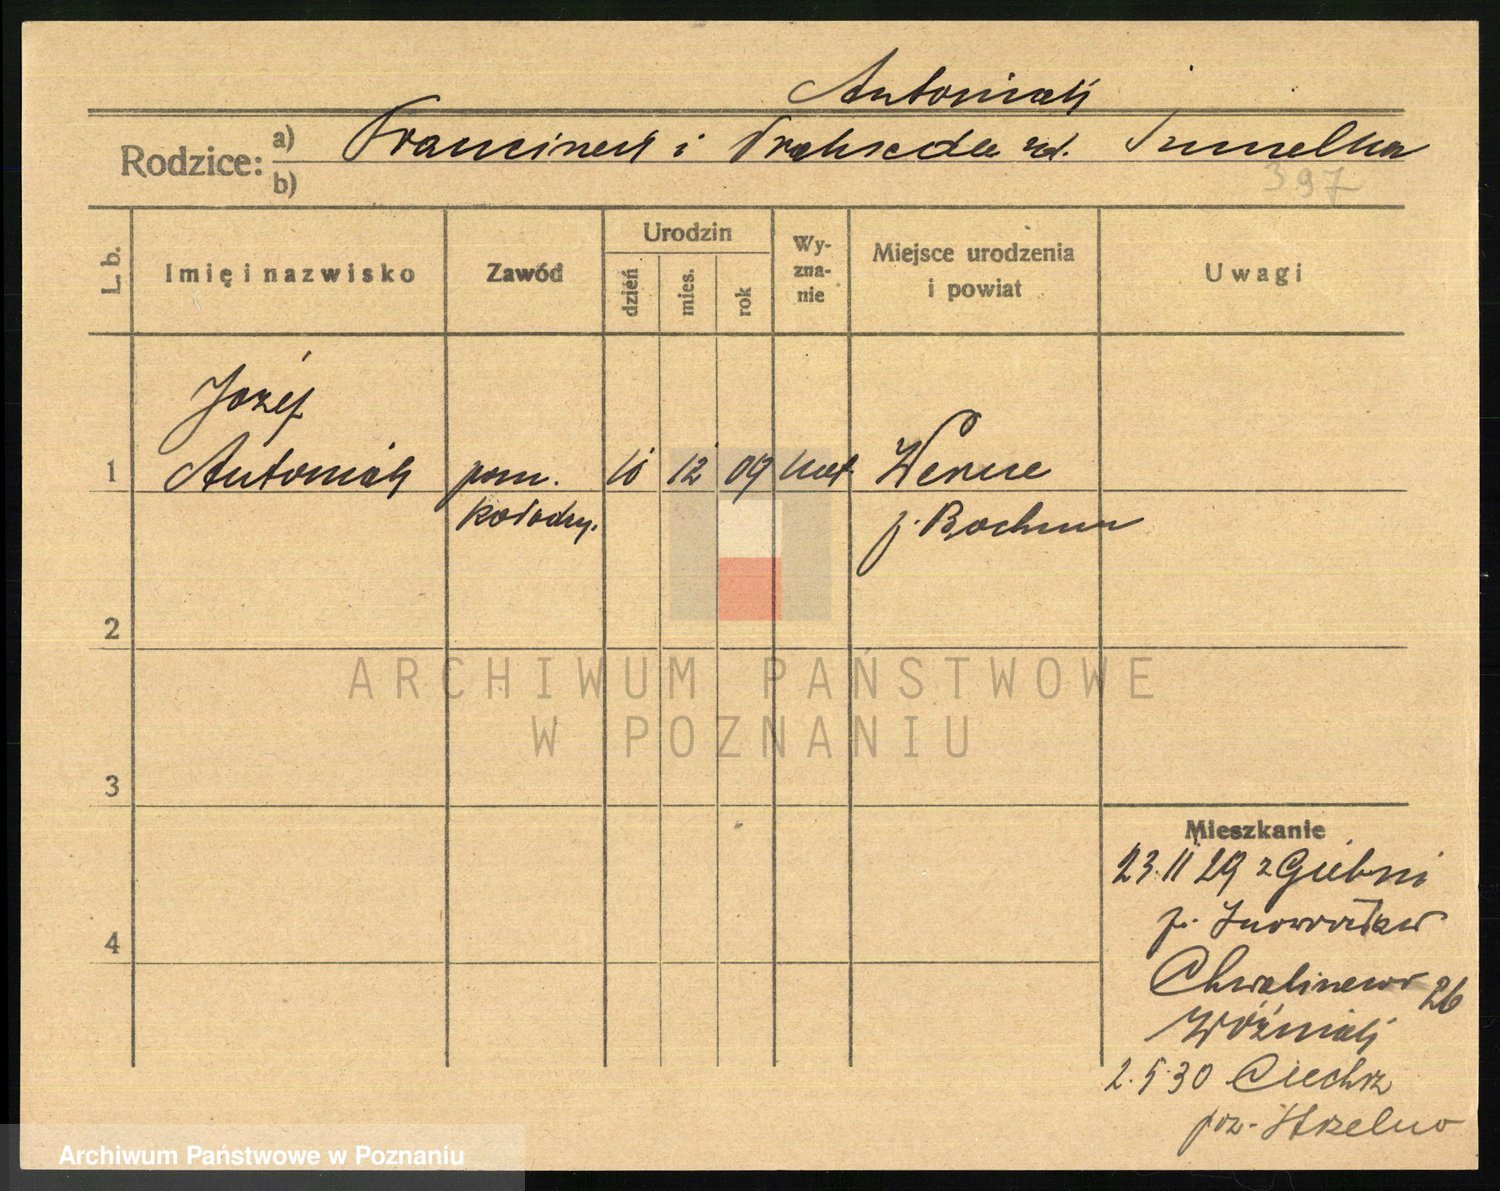 Antoniak
Rodzice: a) Franciszek i Prakseda zd. Szmelka
b)
397
L. b.
Imię i nazwisko
Zawód
Urodzin
dzień
mies.
rok
Wy-
zna-
nie
Miejsce urodzenia
i powiat
Uwagi
Józef
1 Antoniak pom. 10 12 09 kat Werne
kołodz. p. Bochum
2
3
4
Mieszkanie
23.11 29 z Giebni
p. Inowrocław
Chwaliszewo 26
Woźniak
2.5.30 Ciechrz
pow. Strzelno
ARCHIWUM PAŃSTWOWE
W POZNANIU
Archiwum Państwowe w Poznaniu